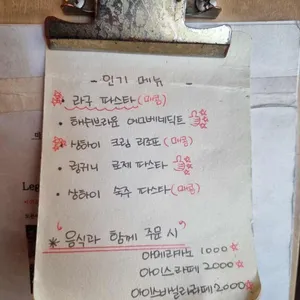 - 인기 메뉴 -
• 라구 파스타 (매콤)
• 해쉬브라운 에그베네딕트
• 상하이 크림 리조또 (매콤)
• 링귀니 로제 파스타
• 상하이 숙주 파스타 (매콤)
* 음식과 함께 주문 시
아메리카노 1000
아이스라떼 2000
아이스바닐라라떼 2000
Leg